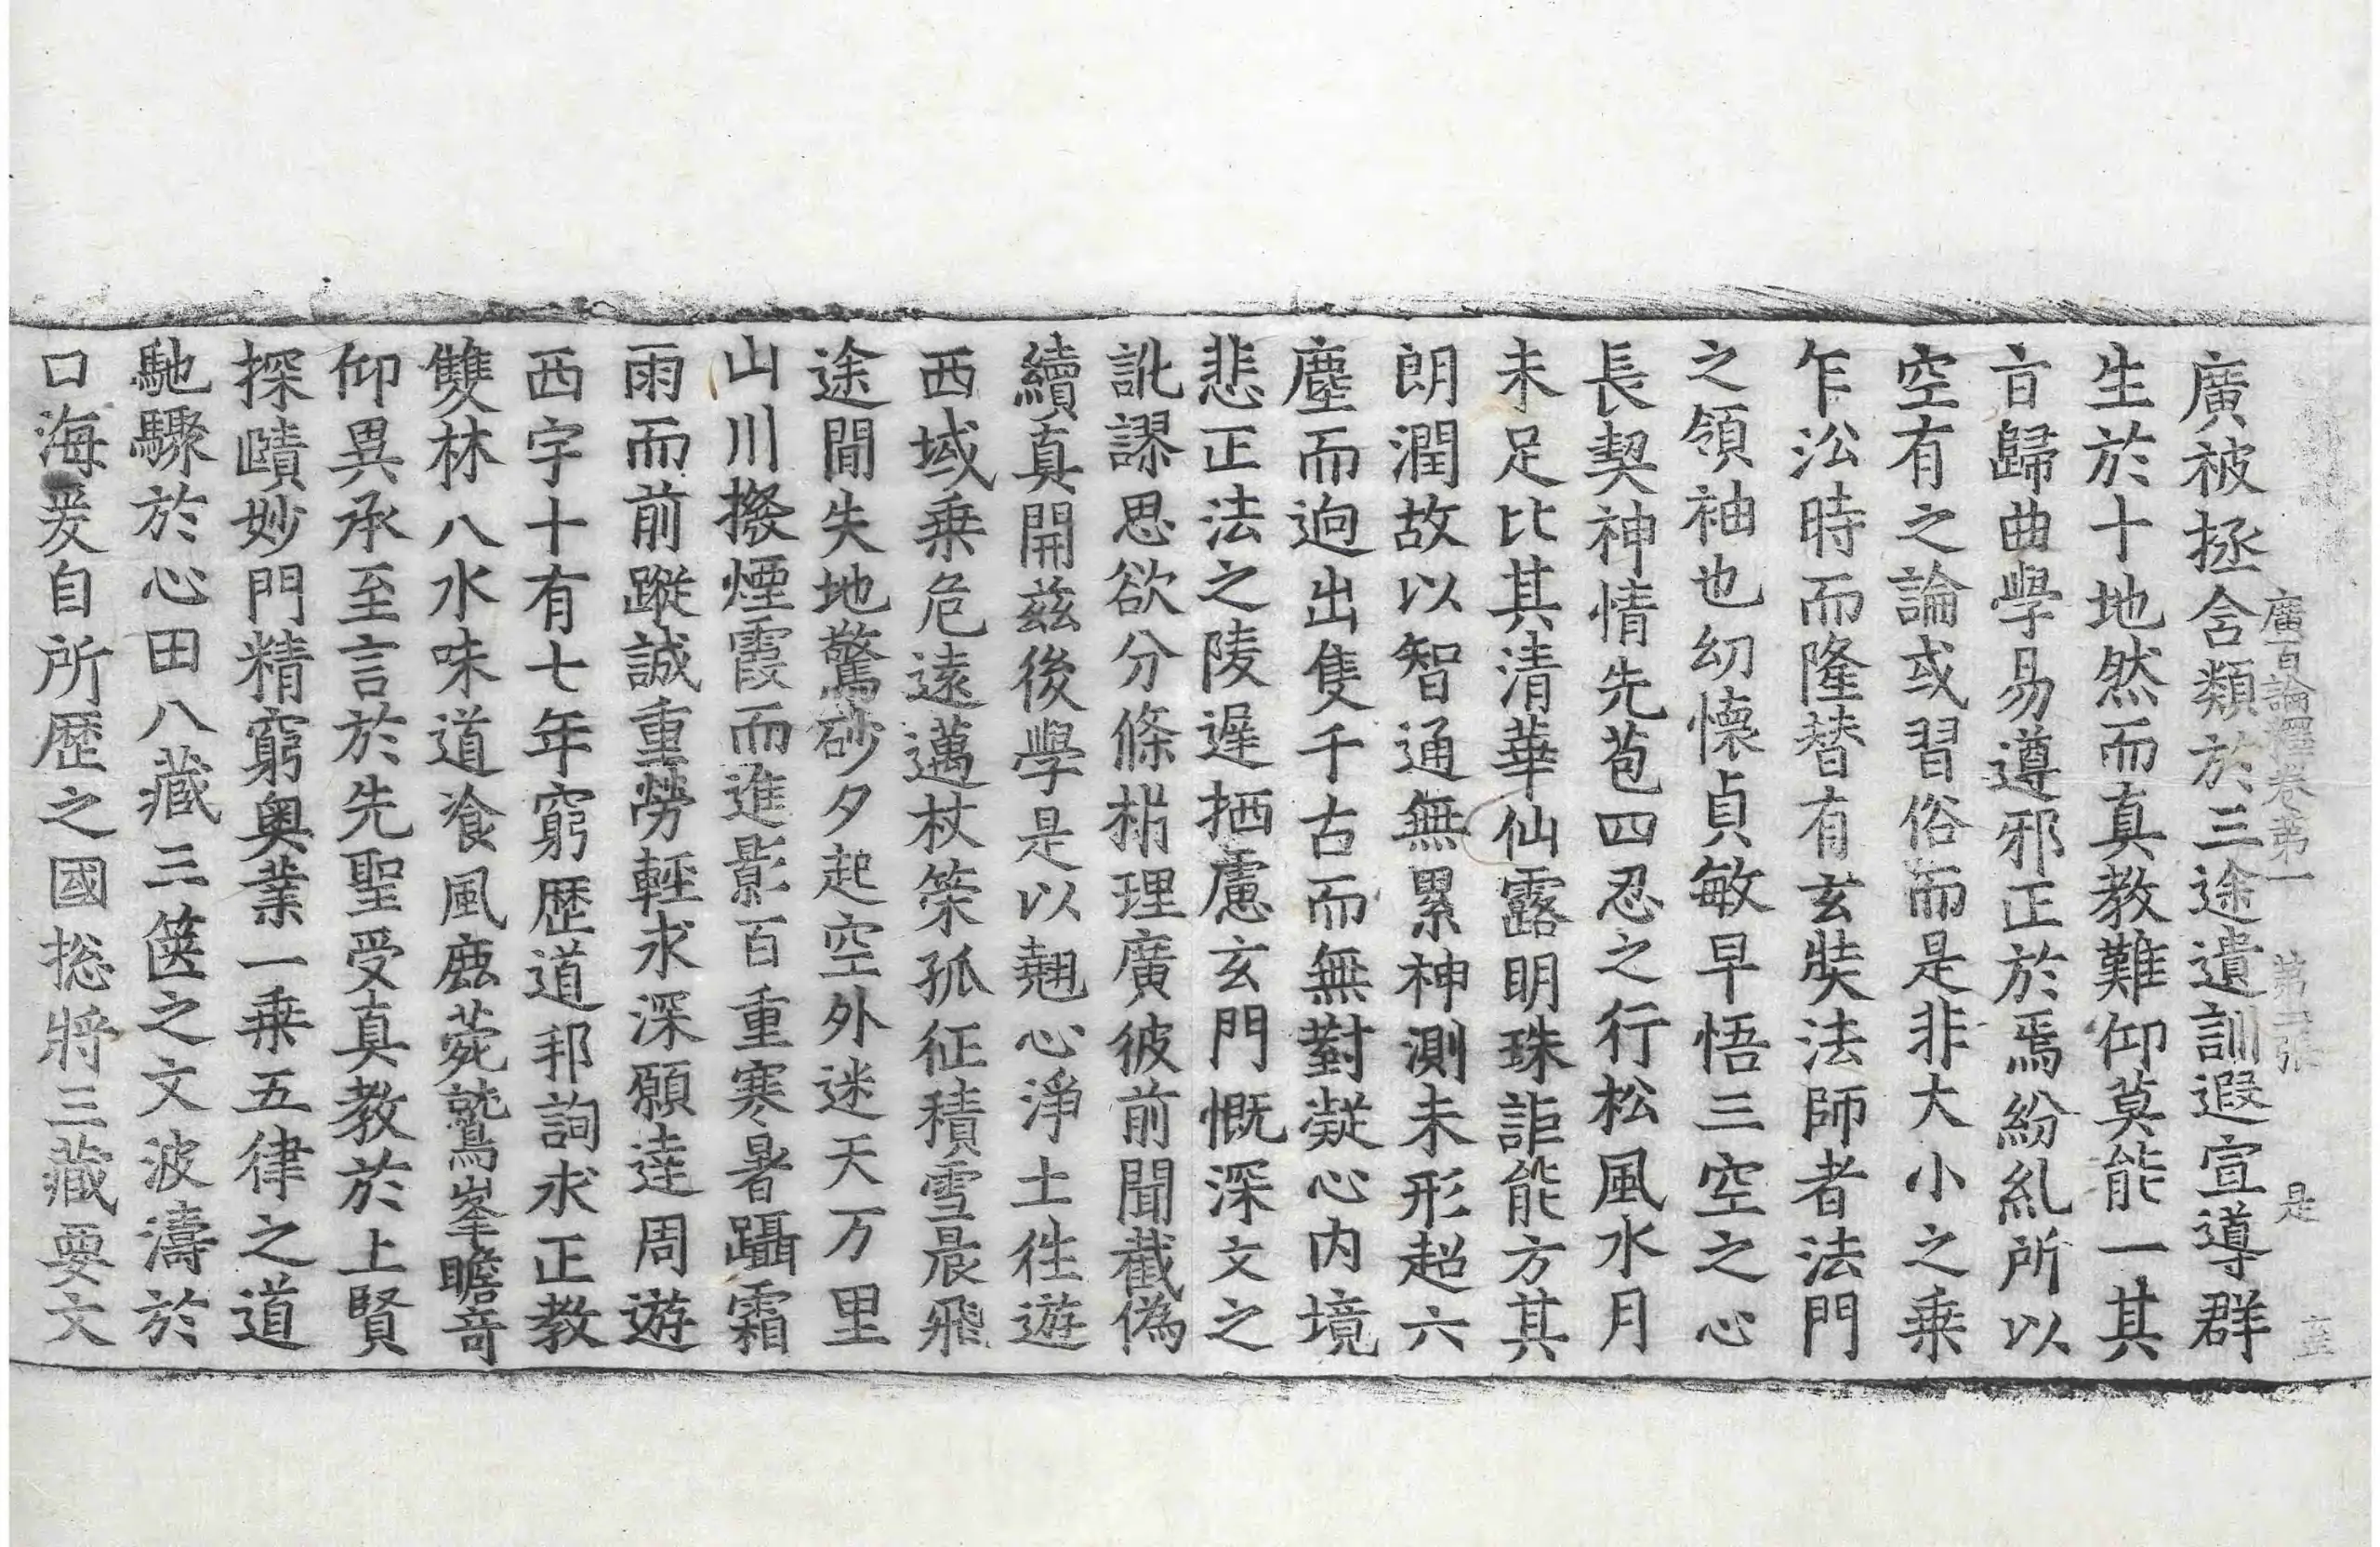 廣百論釋卷苐一 苐二張 是
廣被拯含類於三途遺訓遐宣導群
生於十地然而真教難仰莫能一其
㫖歸曲學易遵邪正於焉紛糺所以
空有之論或習俗而是非大小之乗
乍㳂時而隆替有玄奘法師者法門
之領袖也㓜懐貞敏早悟三空之心
長契神情先苞四忍之行松風水月
未足比其清華仙露明珠詎能方其
朗潤故以智通無累神測未形超六
塵而逈出隻千古而無對凝心内境
悲正法之陵遅栖慮玄門慨深文之
訛謬思欲分條㭊理廣彼前聞截偽
續真開兹後學是以翹心淨土徃遊
西域乗危遠邁杖䇿孤征積雪晨飛
途閒失地驚砂夕起空外迷天万里
山川撥煙霞而進影百重寒暑躡霜
雨而前蹤誠重勞輕求深願達周遊
西宇十有七年窮歴道邦詢求正教
雙林八水味道飡風鹿菀鷲峯瞻竒
仰異承至言於先聖受真教於上賢
探賾妙門精窮奥業一乗五律之道
馳驟於心田八藏三篋之文波濤於
口海爰自所歴之國揔將三藏要文